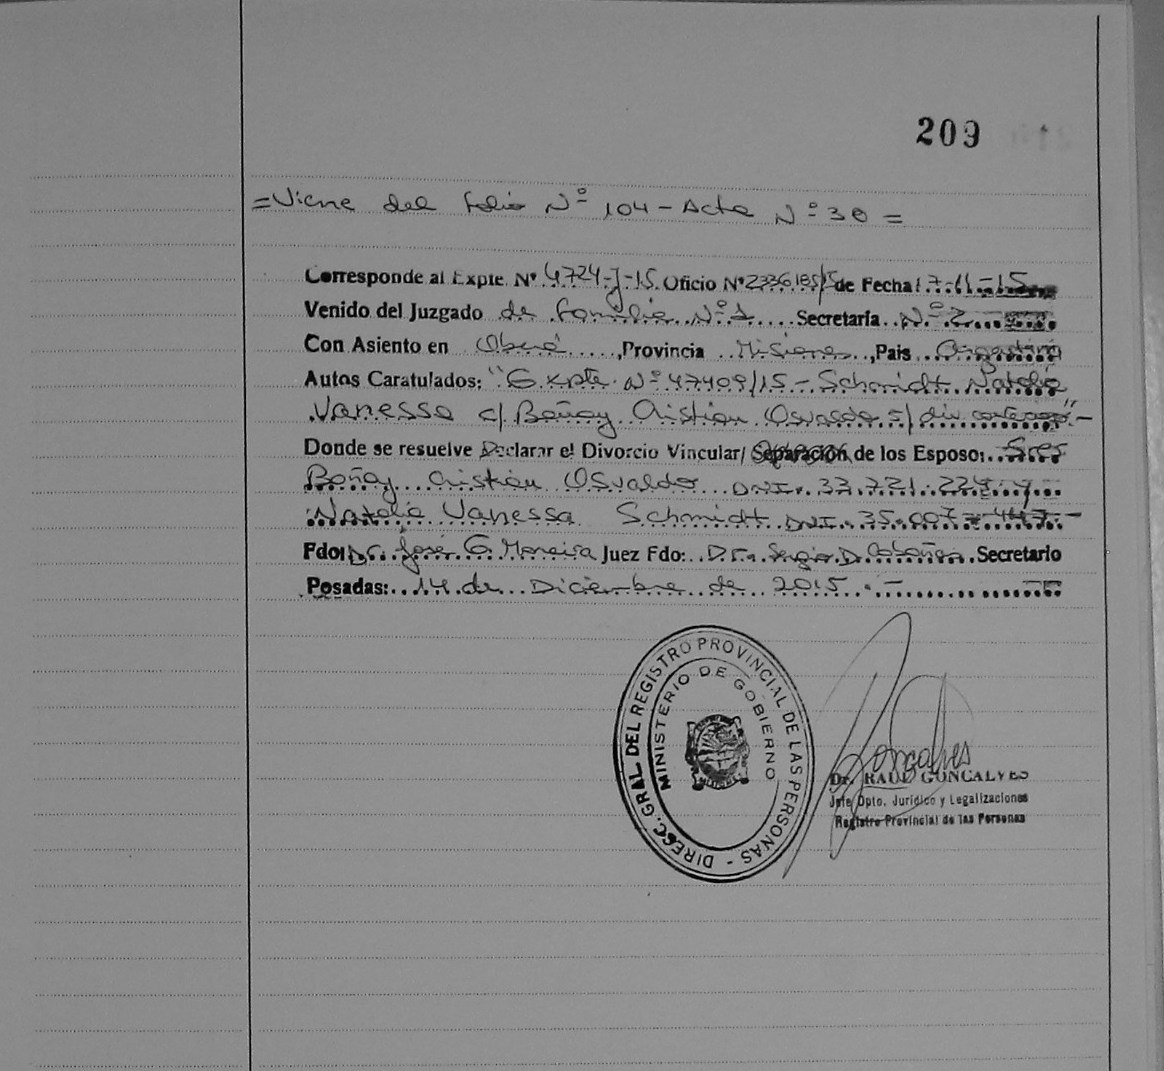 209
=Viene del folio Nº 104 - Acta Nº 30 =
Corresponde al Expte. Nº 4724-J-15. Oficio Nº de Fecha: 17-11-15
Venido del Juzgado de familia Nº 1 Secretaría Nº 2
Con Asiento en Oberá, Provincia Misiones, Pais Argentina
Autos Caratulados: "Expte. Nº 47409/15 - Schmidt Natalia
Vanessa c/ Boñay Cristian Osvaldo s/ div.
Donde se resuelve Declarar el Divorcio Vincular/ Separación de los Esposo: Sres
Boñay Cristian Osvaldo DNI. 33.721.224 y
Natalia Vanessa Schmidt DNI. 35.007.447.-
Fdo: Dr. José G. Moreira Juez Fdo: Dr. Sergio D. Secretario
Posadas: 14 de Diciembre de 2015.-
DIRECC. GRAL. DEL REGISTRO PROVINCIAL DE LAS PERSONAS -
MINISTERIO DE GOBIERNO
Goncalves
Dr. RAUL GONCALVES
Jefe Dpto. Jurídico y Legalizaciones
Registro Provincial de las Personas